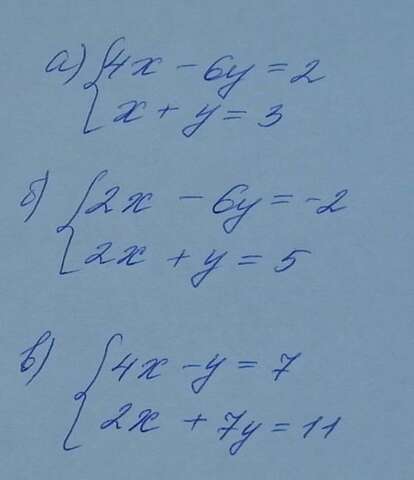 а) { 4x - 6y = 2
x + y = 3
б) { 2x - 6y = -2
2x + y = 5
в) { 4x - y = 7
2x + 7y = 11